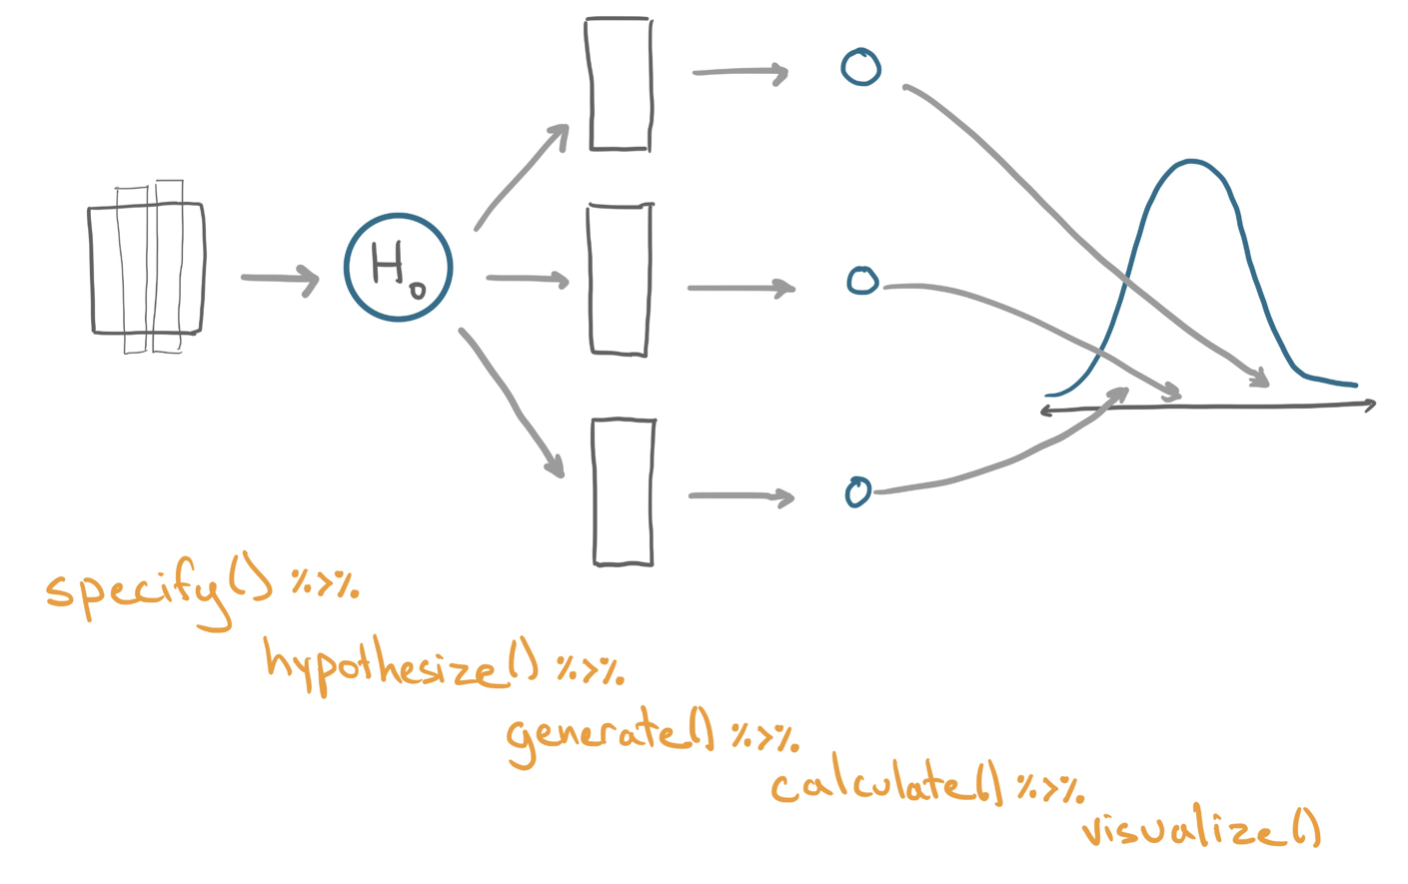 H₀
specify() %>%
hypothesize() %>%
generate() %>%
calculate() %>%
visualize()